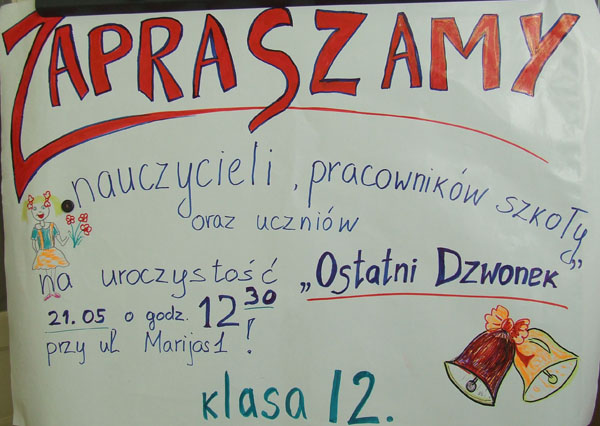 ZAPRASZAMY
nauczycieli, pracowników szkoły
oraz uczniów
na uroczystość „Ostatni Dzwonek”
21.05 o godz. 12 30
przy ul Marijas 1 !
klasa 12.